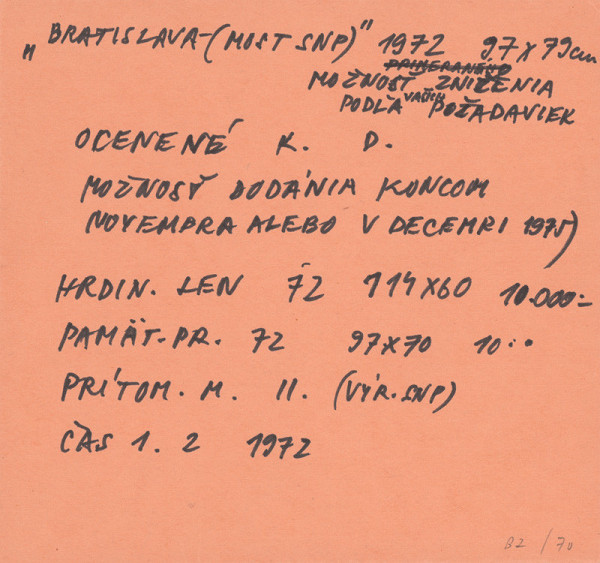 „BRATISLAVA-(MOST SNP)" 1972 97x79cm
MOŽNOSŤ ZNIŽENIA
PODĽA VAŠICH POŽADAVIEK
OCENENÉ K. D.
MOŽNOSŤ DODANIA KONCOM
NOVEMBRA ALEBO V DECEMBRI 1975)
HRDIN. LEN 72 114x60 10.000=
PAMÄT. PR. 72 97x70 10..
PRÍTOM. M. II. (VÝR. SNP)
ČAS 1. 2 1972
82/70